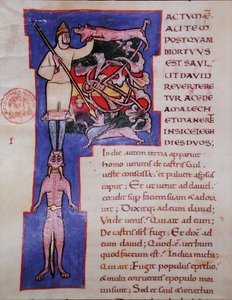 ACTUM E
AUTEM
POSTQVAM
MORTVVS
EST SAVL,
UT DAVID
REVERTERE
TVR A CEDE AMA
LECH
ET MANERET
IN SICELEG
DIES DVOS;
In die autem tercia apparuit
homo veniens de castris saul,
veste conscissa, et pulvere aspsus
caput; Et ut venit ad david,
cecidit sup faciem suam & ado
ravit; Dixitq; ad eum david;
Unde venis? Qui ait ad eum;
De castris isrl fugi; Et dix ad
eum david; Quod e verbum
quod factum est? Indica michi;
Qui ait; Fugit populus e prelio, &
multi corruentes e populo mor
tui sunt; Sed et saul & ionathas
I